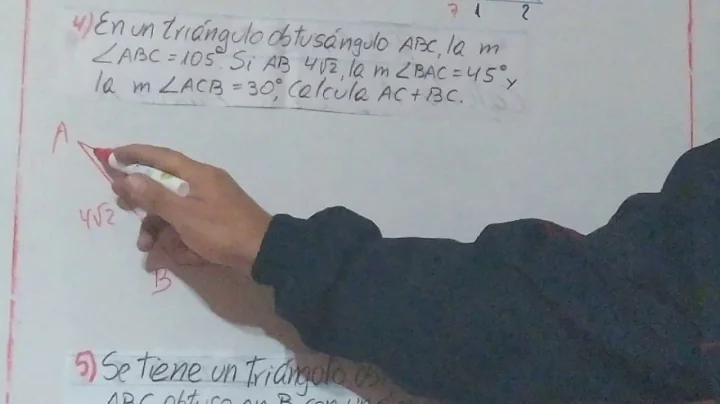 7 1 2
4) En un triángulo obtusángulo ABC, la m
∠ABC = 105°. Si AB 4√2, la m∠BAC = 45° y
la m ∠ACB = 30°, Calcula AC + BC.
A
4√2
B
5) Se tiene un triángulo
ABC obtuso en B con un